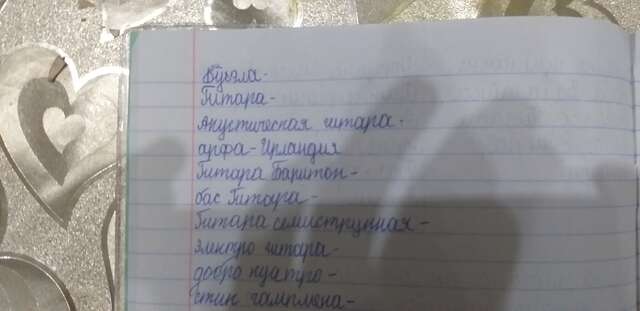 Гитара-
Акустическая гитара-
арфа-Ирландия
Гитара Баритон-
бас Гитара-
Гитара семиструнная-
электро гитара-
добро куатро-
стик